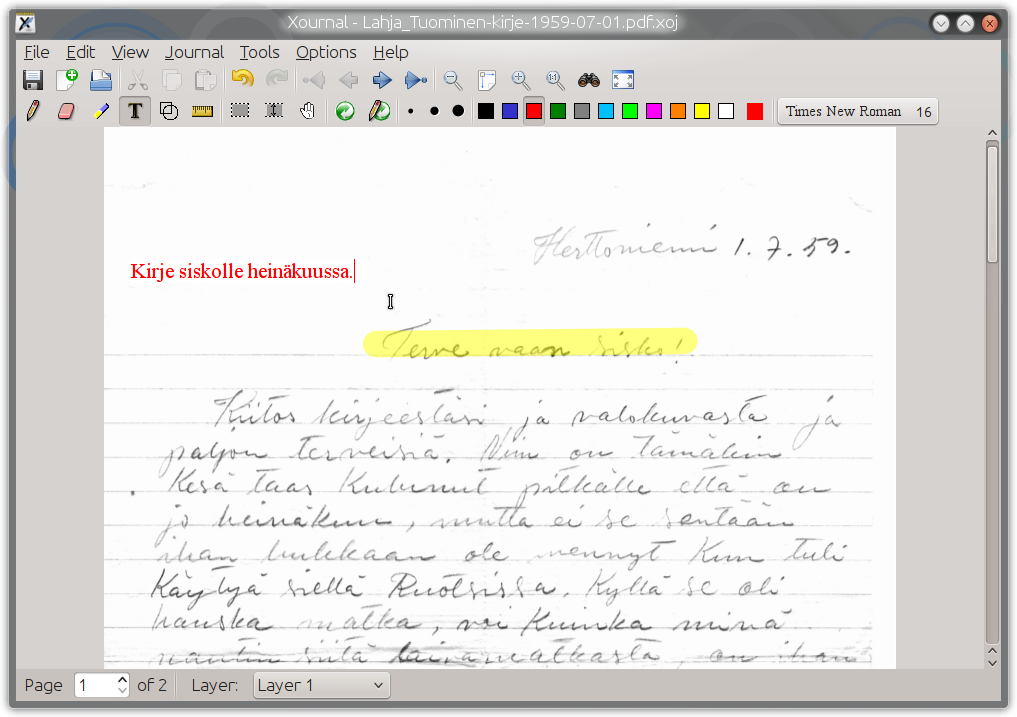 Xournal - Lahja_Tuominen-kirje-1959-07-01.pdf.xoj
File Edit View Journal Tools Options Help
Times New Roman 16
Herttoniemi 1.7.59.
Kirje siskolle heinäkuussa.
Terve vaan sisko!
Kiitos kirjeestäsi ja valokuvasta ja
paljon terveisiä. Niin on tämäkin
Kesä taas Kulunut pitkälle että on
jo heinäkuu, mutta ei se sentään
ihan hukkaan ole mennyt Kun tuli
Käytyä siellä Ruotsissa. Kyllä se oli
hauska matka, voi Kuinka minä
nautin siitä laivamatkasta, on ihan
Page 1 of 2 Layer: Layer 1